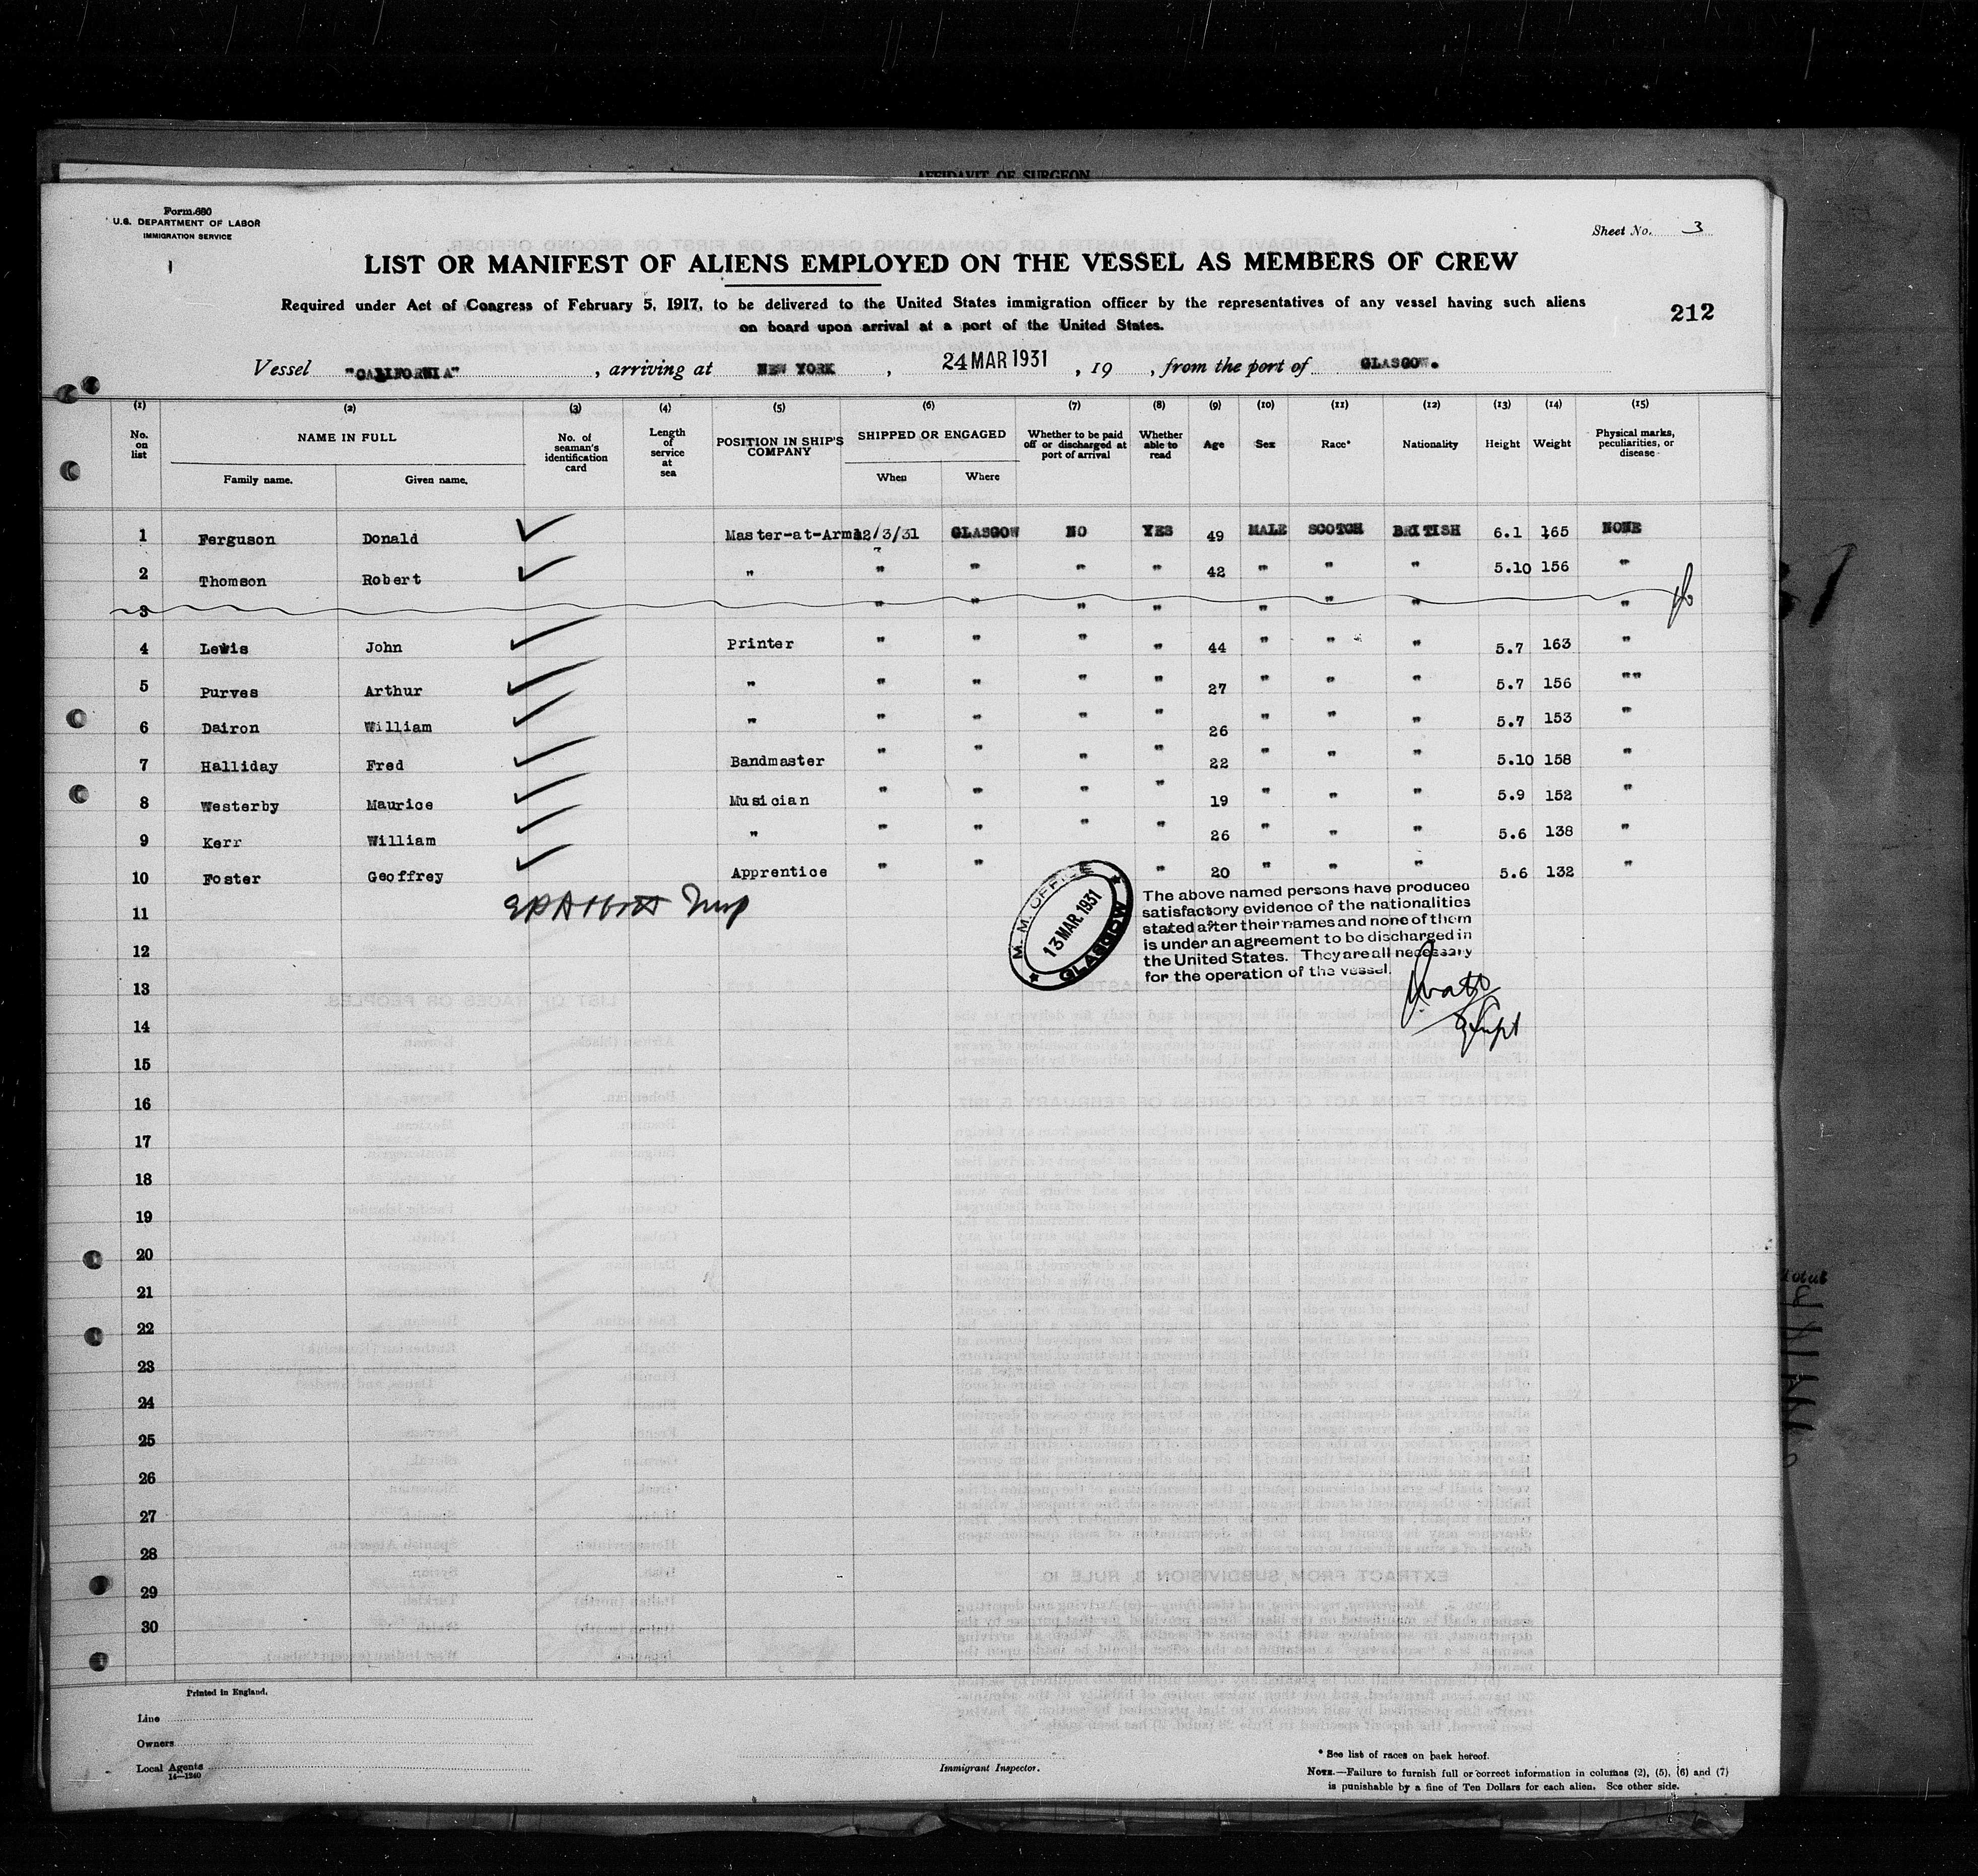 AFFIDAVIT OF SURGEON
Form 680
U.S. DEPARTMENT OF LABOR
IMMIGRATION SERVICE
Sheet No. 3
LIST OR MANIFEST OF ALIENS EMPLOYED ON THE VESSEL AS MEMBERS OF CREW
Required under Act of Congress of February 5, 1917, to be delivered to the United States immigration officer by the representatives of any vessel having such aliens
on board upon arrival at a port of the United States.
212
Vessel "CALIFORNIA", arriving at NEW YORK, 24 MAR 1931, 19 , from the port of GLASGOW.
(1) (2) (3) (4) (5) (6) (7) (8) (9) (10) (11) (12) (13) (14) (15)
No. on list NAME IN FULL Family name. Given name. No. of seaman's identification card Length of service at sea POSITION IN SHIP'S COMPANY SHIPPED OR ENGAGED When Where Whether to be paid off or discharged at port of arrival Whether able to read Age Sex Race* Nationality Height Weight Physical marks, peculiarities, or disease
1 Ferguson Donald Master-at-Arms 12/3/31 GLASGOW NO YES 49 MALE SCOTCH BRITISH 6.1 165 NONE
2 Thomson Robert " " " " " 42 " " " 5.10 156 "
3 " " " " " " " "
4 Lewis John Printer " " " " 44 " " " 5.7 163 "
5 Purves Arthur " " " " " 27 " " " 5.7 156 ""
6 Dairon William " " " " " 26 " " " 5.7 153 "
7 Halliday Fred Bandmaster " " " " 22 " " " 5.10 158 "
8 Westerby Maurice Musician " " " " 19 " " " 5.9 152 "
9 Kerr William " " " " " 26 " " " 5.6 138 "
10 Foster Geoffrey Apprentice " " " 20 " " " 5.6 132 "
11
12
13
14
15
16
17
18
19
20
21
22
23
24
25
26
27
28
29
30
M. M. OFFICE
13 MAR. 1931
GLASGOW
The above named persons have produced
satisfactory evidence of the nationalities
stated after their names and none of them
is under an agreement to be discharged in
the United States. They are all necessary
for the operation of the vessel.
Supt
Printed in England.
Line
Owners
Local Agents
14—1240
Immigrant Inspector.
* See list of races on back hereof.
NOTE.—Failure to furnish full or correct information in columns (2), (5), (6) and (7)
is punishable by a fine of Ten Dollars for each alien. See other side.